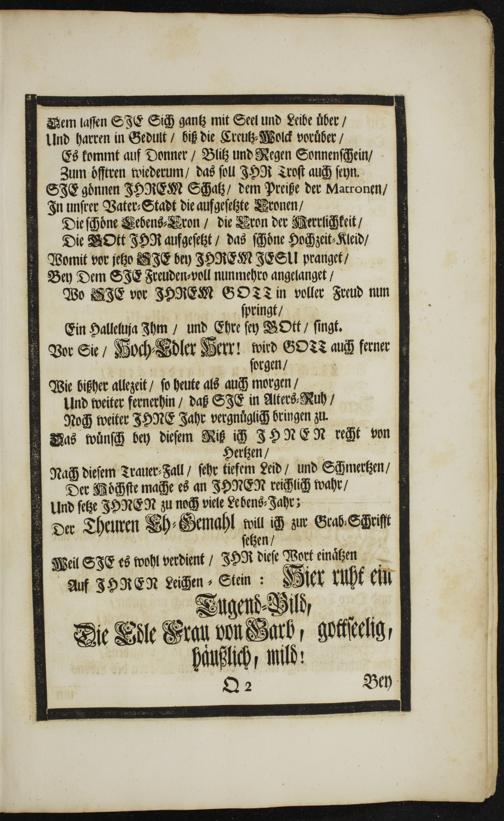 Dem lassen SIE Sich gantz mit Seel und Leibe über /
Und harren in Gedult / biß die Creutz-Wolck vorüber /
Es kommt auf Donner / Blitz und Regen Sonnenschein /
Zum öfftren wiederum / das soll IHR Trost auch seyn.
SIE gönnen IHREM Schatz / dem Preiße der Matronen /
In unsrer Vater-Stadt die aufgesetzte Cronen /
Die schöne Lebens-Cron / die Cron der Herrlichkeit /
Die GOtt IHR aufgesetzt / das schöne Hochzeit-Kleid /
Womit vor jetzo SIE bey IHREM JESU pranget /
Bey Dem SIE Freuden-voll nunmehro angelanget /
Wo SIE vor IHREM GOTT in voller Freud nun
springt /
Ein Halleluja Ihm / und Ehre sey GOtt / singt.
Vor Sie / Hoch-Edler Herr! wird GOTT auch ferner
sorgen /
Wie bißher allezeit / so heute als auch morgen /
Und weiter fernerhin / daß SIE in Alters-Ruh /
Noch weiter IHRE Jahr vergnüglich bringen zu.
Das wünsch bey diesem Riß ich IHNEN recht von
Hertzen /
Nach diesem Trauer-Fall / sehr tiefem Leid / und Schmertzen /
Der Höchste mache es an IHNEN reichlich wahr /
Und setze IHNEN zu noch viele Lebens-Jahr;
Der Theuren Eh-Gemahl will ich zur Grab-Schrifft
setzen /
Weil SIE es wohl verdient / IHR diese Wort einätzen
Auf IHREN Leichen-Stein: Hier ruht ein
Tugend-Bild,
Die Edle Frau von Garb, gottseelig,
häußlich, mild!
Q 2 Bey